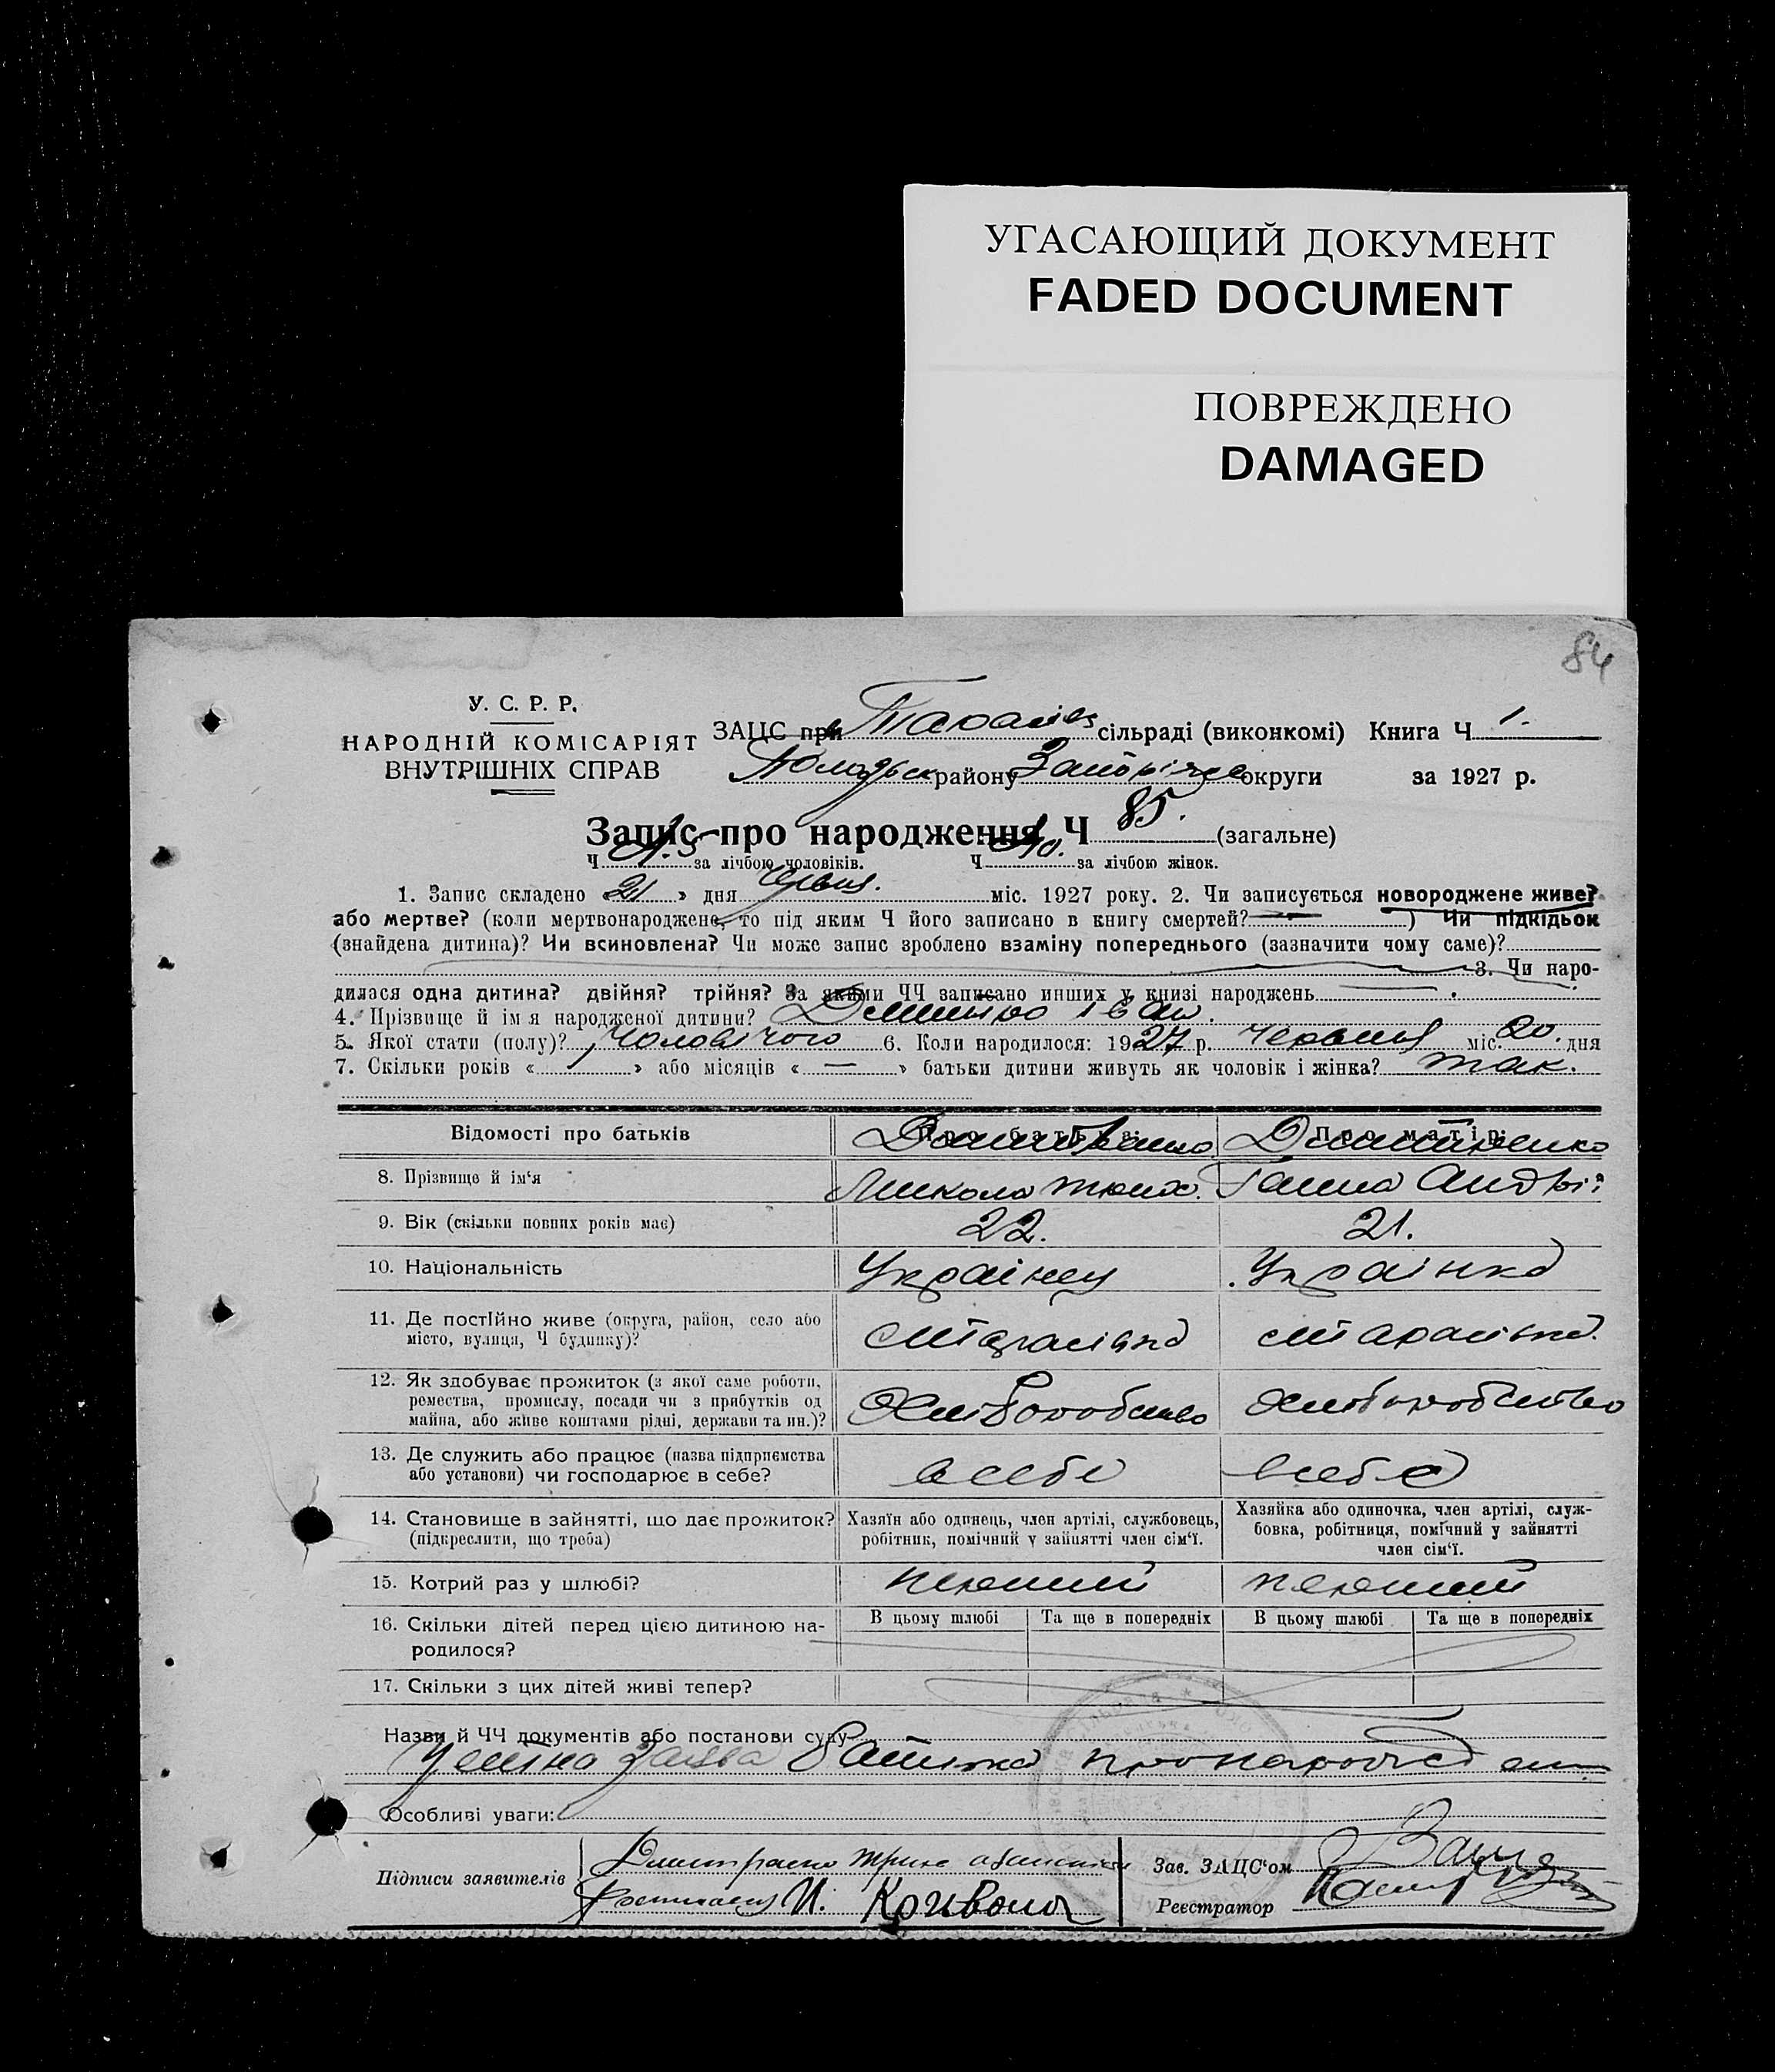 УГАСАЮЩИЙ ДОКУМЕНТ
FADED DOCUMENT
ПОВРЕЖДЕНО
DAMAGED
84
У. С. Р. Р.
НАРОДНІЙ КОМІСАРІЯТ
ВНУТРІШНІХ СПРАВ
ЗАЦС при сільраді (виконкомі) Книга Ч 1.
району округи за 1927 р.
Запис про народження Ч 85. (загальне)
Ч за лічбою чоловіків. Ч за лічбою жінок.
1. Запис складено « 21 » дня міс. 1927 року. 2. Чи записується новороджене живе?
або мертве? (коли мертвонароджене, то під яким Ч його записано в книгу смертей? — ) Чи підкідьок
(знайдена дитина)? Чи всиновлена? Чи може запис зроблено взаміну попереднього (зазначити чому саме)?
3. Чи наро-
дилася одна дитина? двійня? трійня? За якими ЧЧ записано инших у книзі народжень
4. Прізвище й ім'я народженої дитини? Іван.
5. Якої стати (полу)? Чоловічого 6. Коли народилося: 1927 р. Червня міс. 20. дня
7. Скільки років « » або місяців « — » батьки дитини живуть як чоловік і жінка? так.
Відомості про батьків Про батька: Про матір: Дмитренко
8. Прізвище й ім'я Микола Ганна Андрій
9. Вік (скільки повних років має) 22. 21.
10. Національність Українец Українка
11. Де постійно живе (округа, район, село або
місто, вулиця, Ч будинку)?
12. Як здобуває прожиток (з якої саме роботи,
ремества, промислу, посади чи з прибутків од
майна, або живе коштами рідні, держави та ин.)? Хліборобство Хліборобство
13. Де служить або працює (назва підприємства
або установи) чи господарює в себе? в себе в себе
14. Становище в зайнятті, що дає прожиток?
(підкреслити, що треба)
Хазяїн або одинець, член артілі, службовець,
робітник, помічний у зайнятті член сім'ї.
Хазяйка або одиночка, член артілі, служ-
бовка, робітниця, помічний у зайнятті
член сім'ї.
15. Котрий раз у шлюбі? перший перший
16. Скільки дітей перед цією дитиною на-
родилося?
В цьому шлюбі Та ще в попередніх В цьому шлюбі Та ще в попередніх
17. Скільки з цих дітей живі тепер?
Назви й ЧЧ документів або постанови суду
Устна заява батька
Особливі уваги:
Підписи заявителів
И. Кривоша
Зав. ЗАЦС'ом
Реєстратор